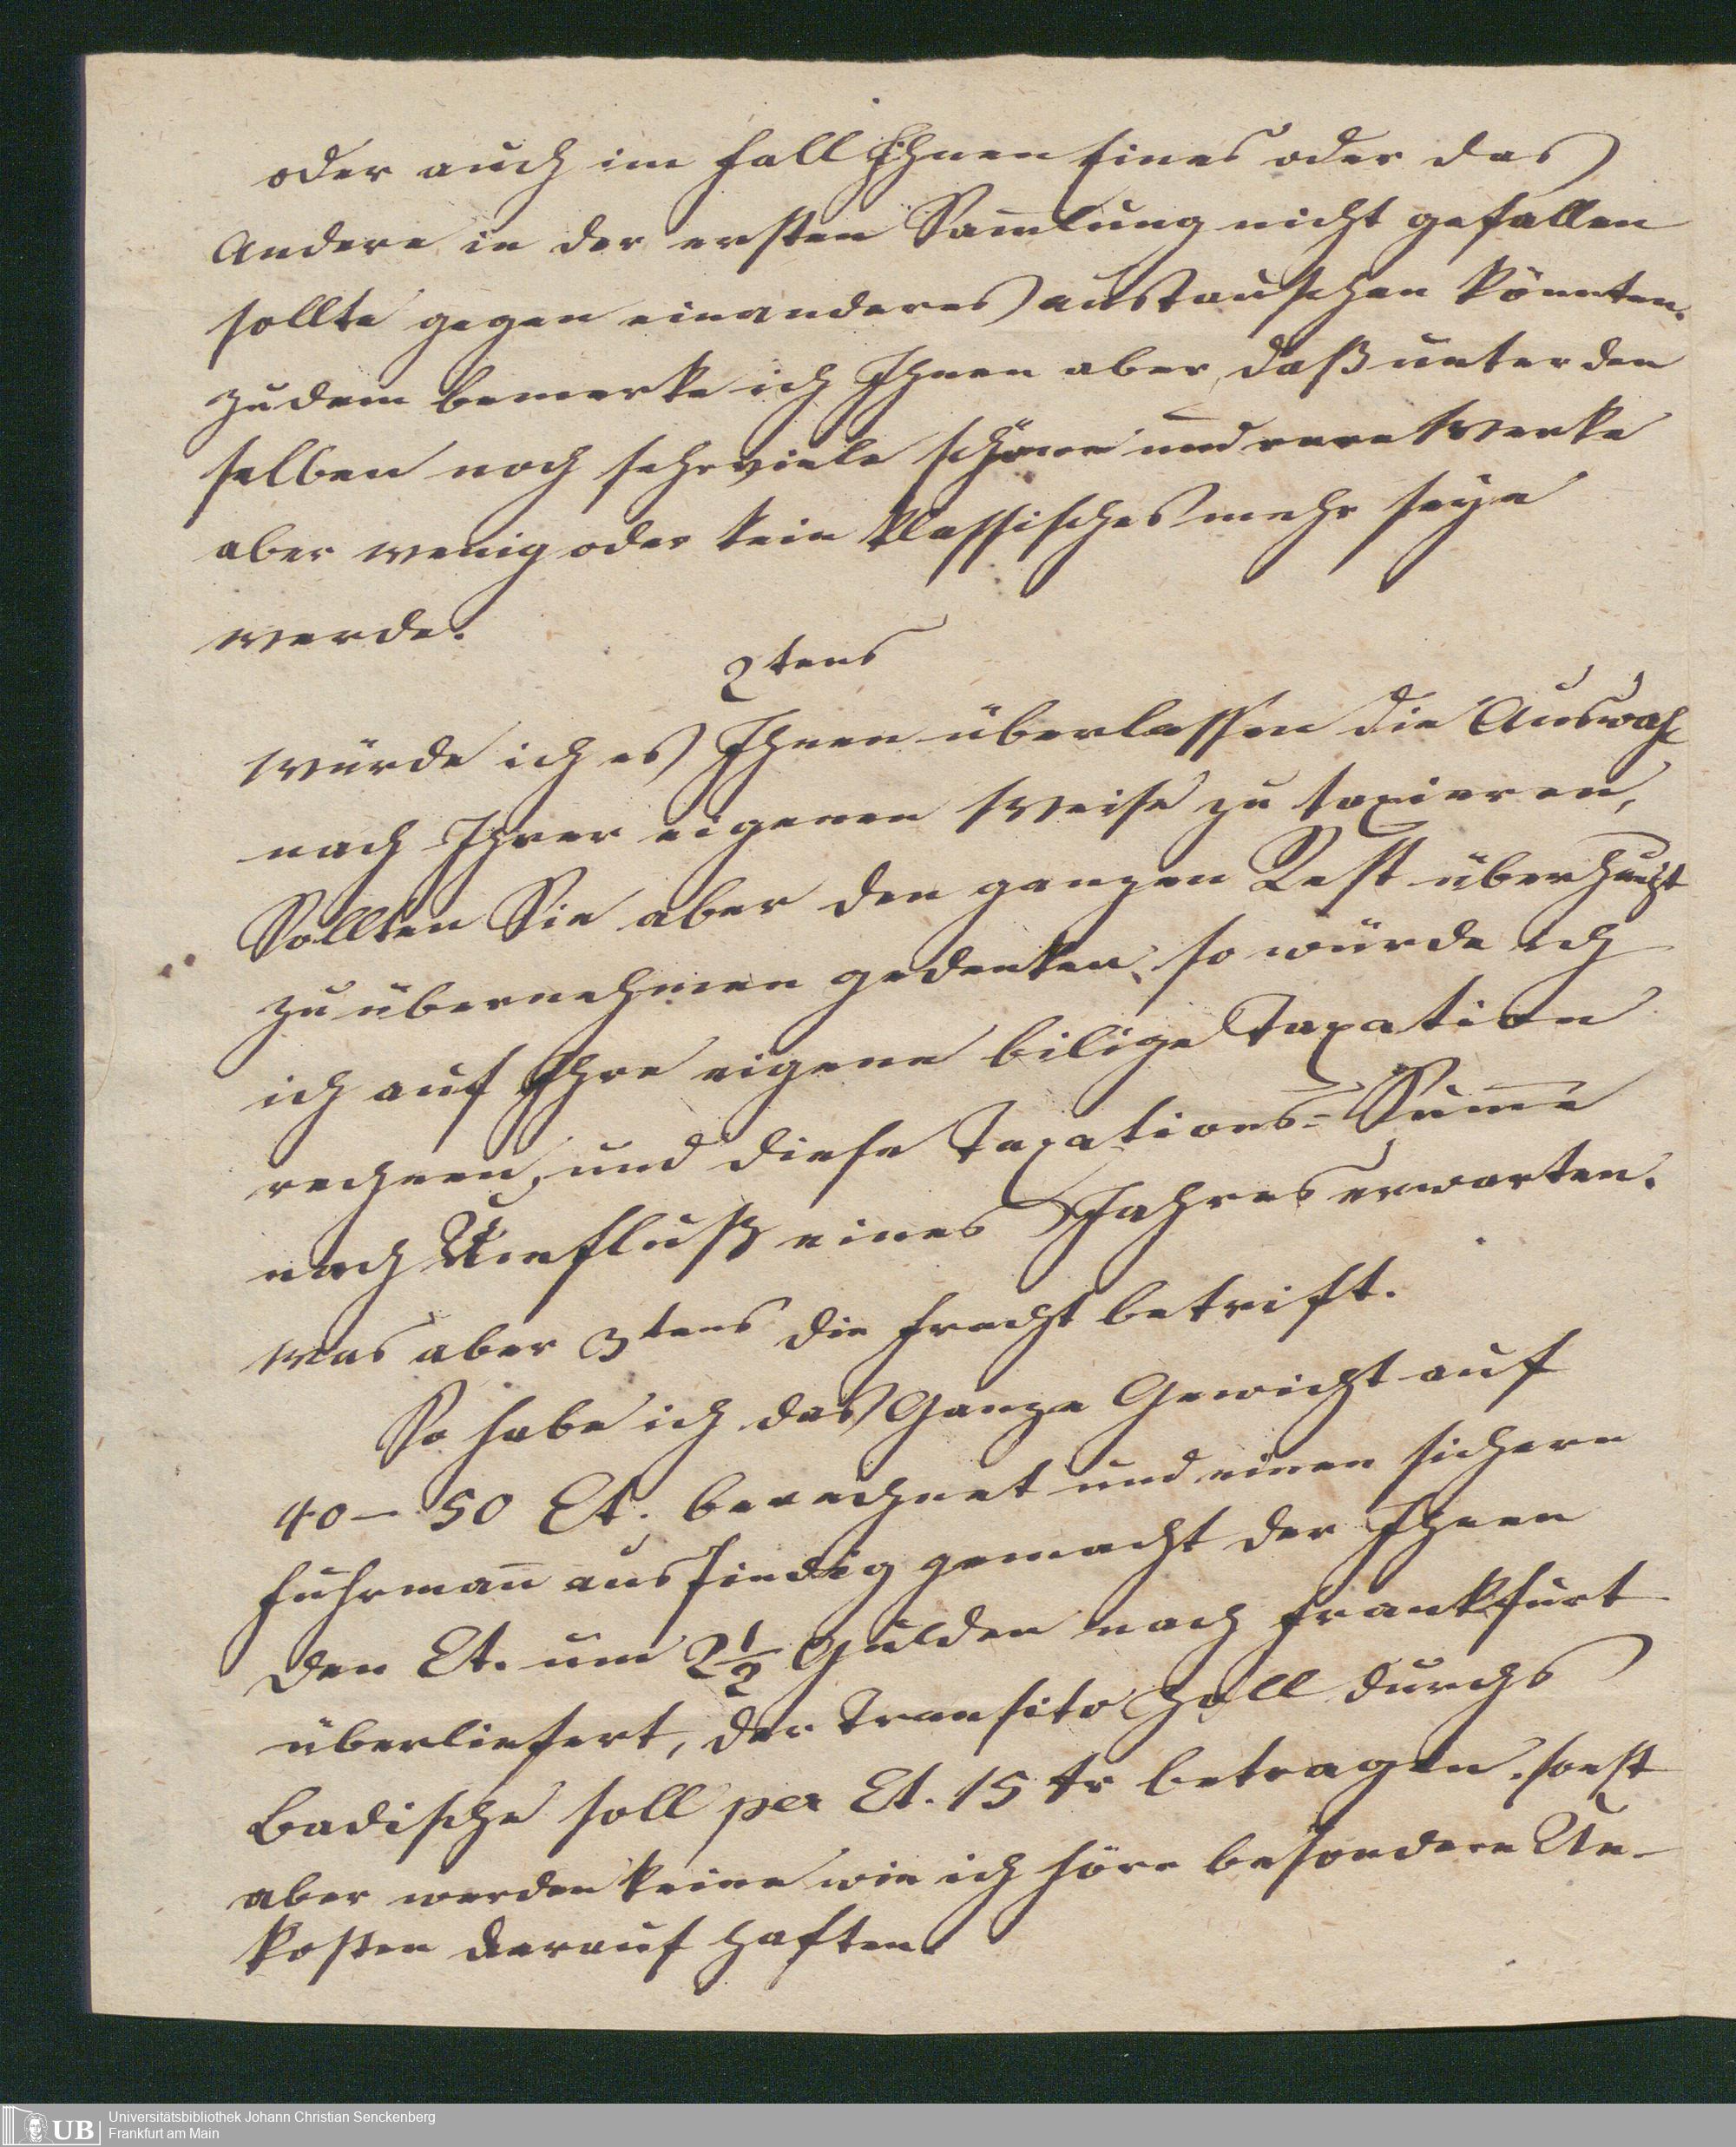 oder auch im Fall Ihnen Eines oder das
Andere in der ersten Sam̄lung nicht gefallen
sollte gegen ein anderes austauschen könnten.
zudem bemerke ich Ihnen aber, daß unter den
selben noch sehr viele schöne und rare Werke
aber wenig oder kein klassisches mehr seyn
werde.
2tens
würde ich es Ihnen überlassen die Auswahl
nach Ihrer eigenen Weise zu taxieren,
Sollten Sie aber den ganzen Rest überhaupt
zu übernehmen gedenken, so würde ich
ich auf Ihre eigene bilige Taxation
rechnen, und diese Taxations-Sum̄e
nach Umfluß eines Jahres erwarten.
Was aber 3tens die Fracht betrift.
So habe ich das Ganze Gewicht auf
40 - 50 Ct. berechnet und einen sichern
Fuhrman̄ ausfindig gemacht der Ihnen
den Ct. um 2½ Gulden nach Frankfurt
überliefert, der Transito Zoll durchs
Badische soll per Ct. 15 kr betragen. sonst
aber werden keine wie ich höre besondere Un-
kosten darauf haften.
UB
Universitätsbibliothek Johann Christian Senckenberg
Frankfurt am Main